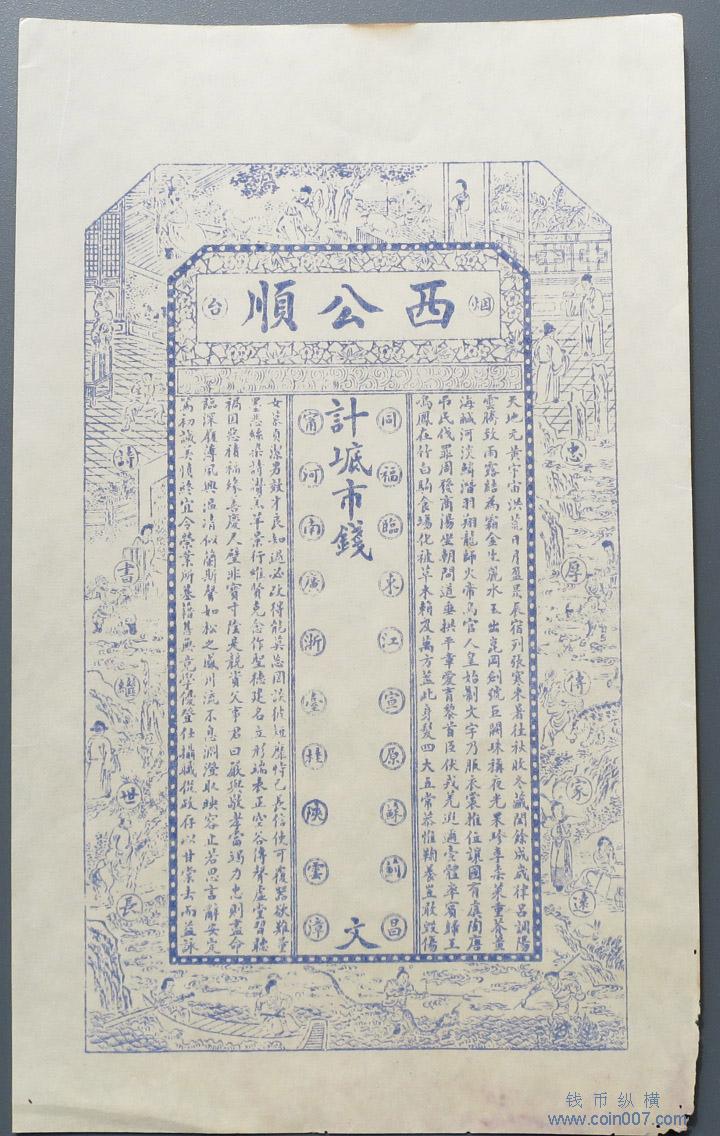 烟台
西公順
忠厚傳家遠
天地元黃宇宙洪荒日月盈昃辰宿列張寒來暑往秋收冬藏閏餘成歲律呂調陽
雲騰致雨露結為霜金生麗水玉出崑岡劍號巨闕珠稱夜光果珍李柰菜重芥薑
海鹹河淡鱗潛羽翔龍師火帝鳥官人皇始制文字乃服衣裳推位讓國有虞陶唐
弔民伐罪周發商湯坐朝問道垂拱平章愛育黎首臣伏戎羌遐邇壹體率賓歸王
鳴鳳在竹白駒食場化被草木賴及萬方蓋此身髮四大五常恭惟鞠養豈敢毀傷
同福臨東江宣原蘇薊昌
計㡳市錢 文
甯河南廣浙臺桂陝雲漳
女慕貞潔男效才良知過必改得能莫忘罔談彼短靡恃己長信使可覆器欲難量
墨悲絲染詩讚羔羊景行維賢克念作聖德建名立形端表正空谷傳聲虛堂習聽
禍因惡積福緣善慶尺璧非寶寸陰是競資父事君曰嚴與敬孝當竭力忠則盡命
臨深履薄夙興溫凊似蘭斯馨如松之盛川流不息淵澄取映容止若思言辭安定
篤初誠美慎終宜令榮業所基籍甚無竟學優登仕攝職從政存以甘棠去而益詠
詩書繼世長
钱币纵横
www.coin007.com